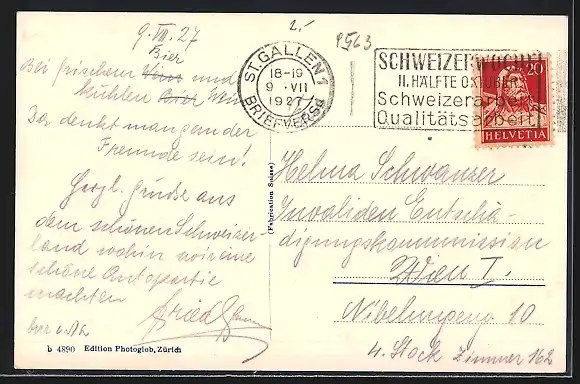 9. VII. 27
2.-
Bier
Bei frischem und
kühlen Bier Wein
Da denkt man gern der
Freunde sein!
Herzl. Grüße aus
dem schönen Schweizer-
land wohin wir eine
schöne Autopartie
machten
b 4890 Edition Photoglob, Zürich
(Fabrication Suisse)
ST. GALLEN 1
18-19
9. VII
1927
BRIEFVERSD
SCHWEIZERWOCHE
II. HÄLFTE OKTOBER
Schweizerarbeit
Qualitätsarbeit
20
HELVETIA
Helma Schwanzer
Invaliden Entschä-
digungskommission
Wien I.
Nibelungeng 10
4. Stock Zimmer 162